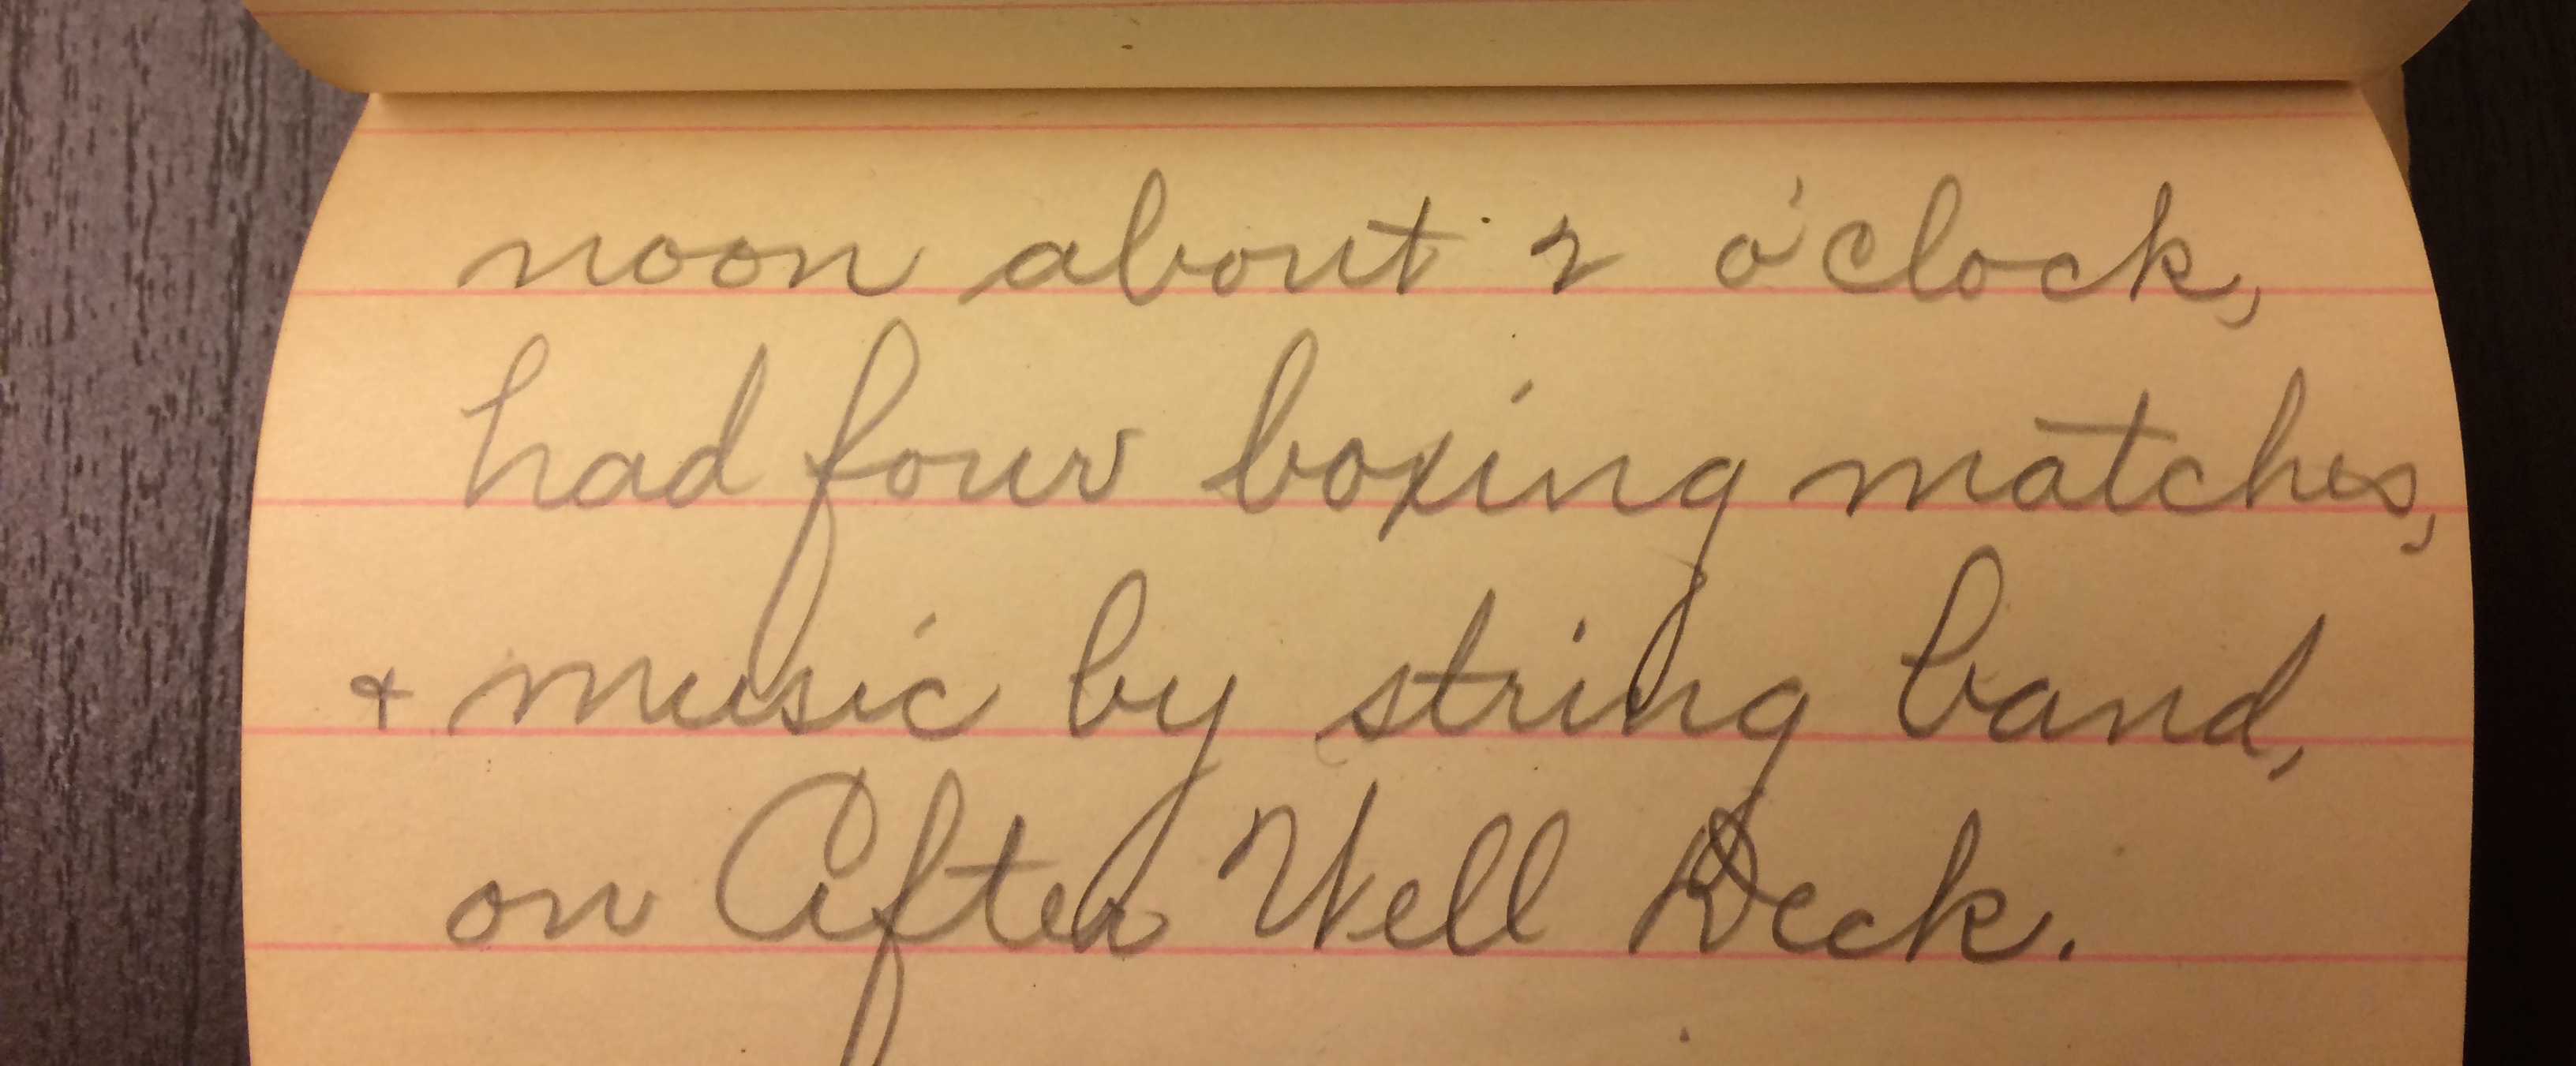 noon about 2 o'clock,
had four boxing matches,
+ music by string band,
on After Well Deck.